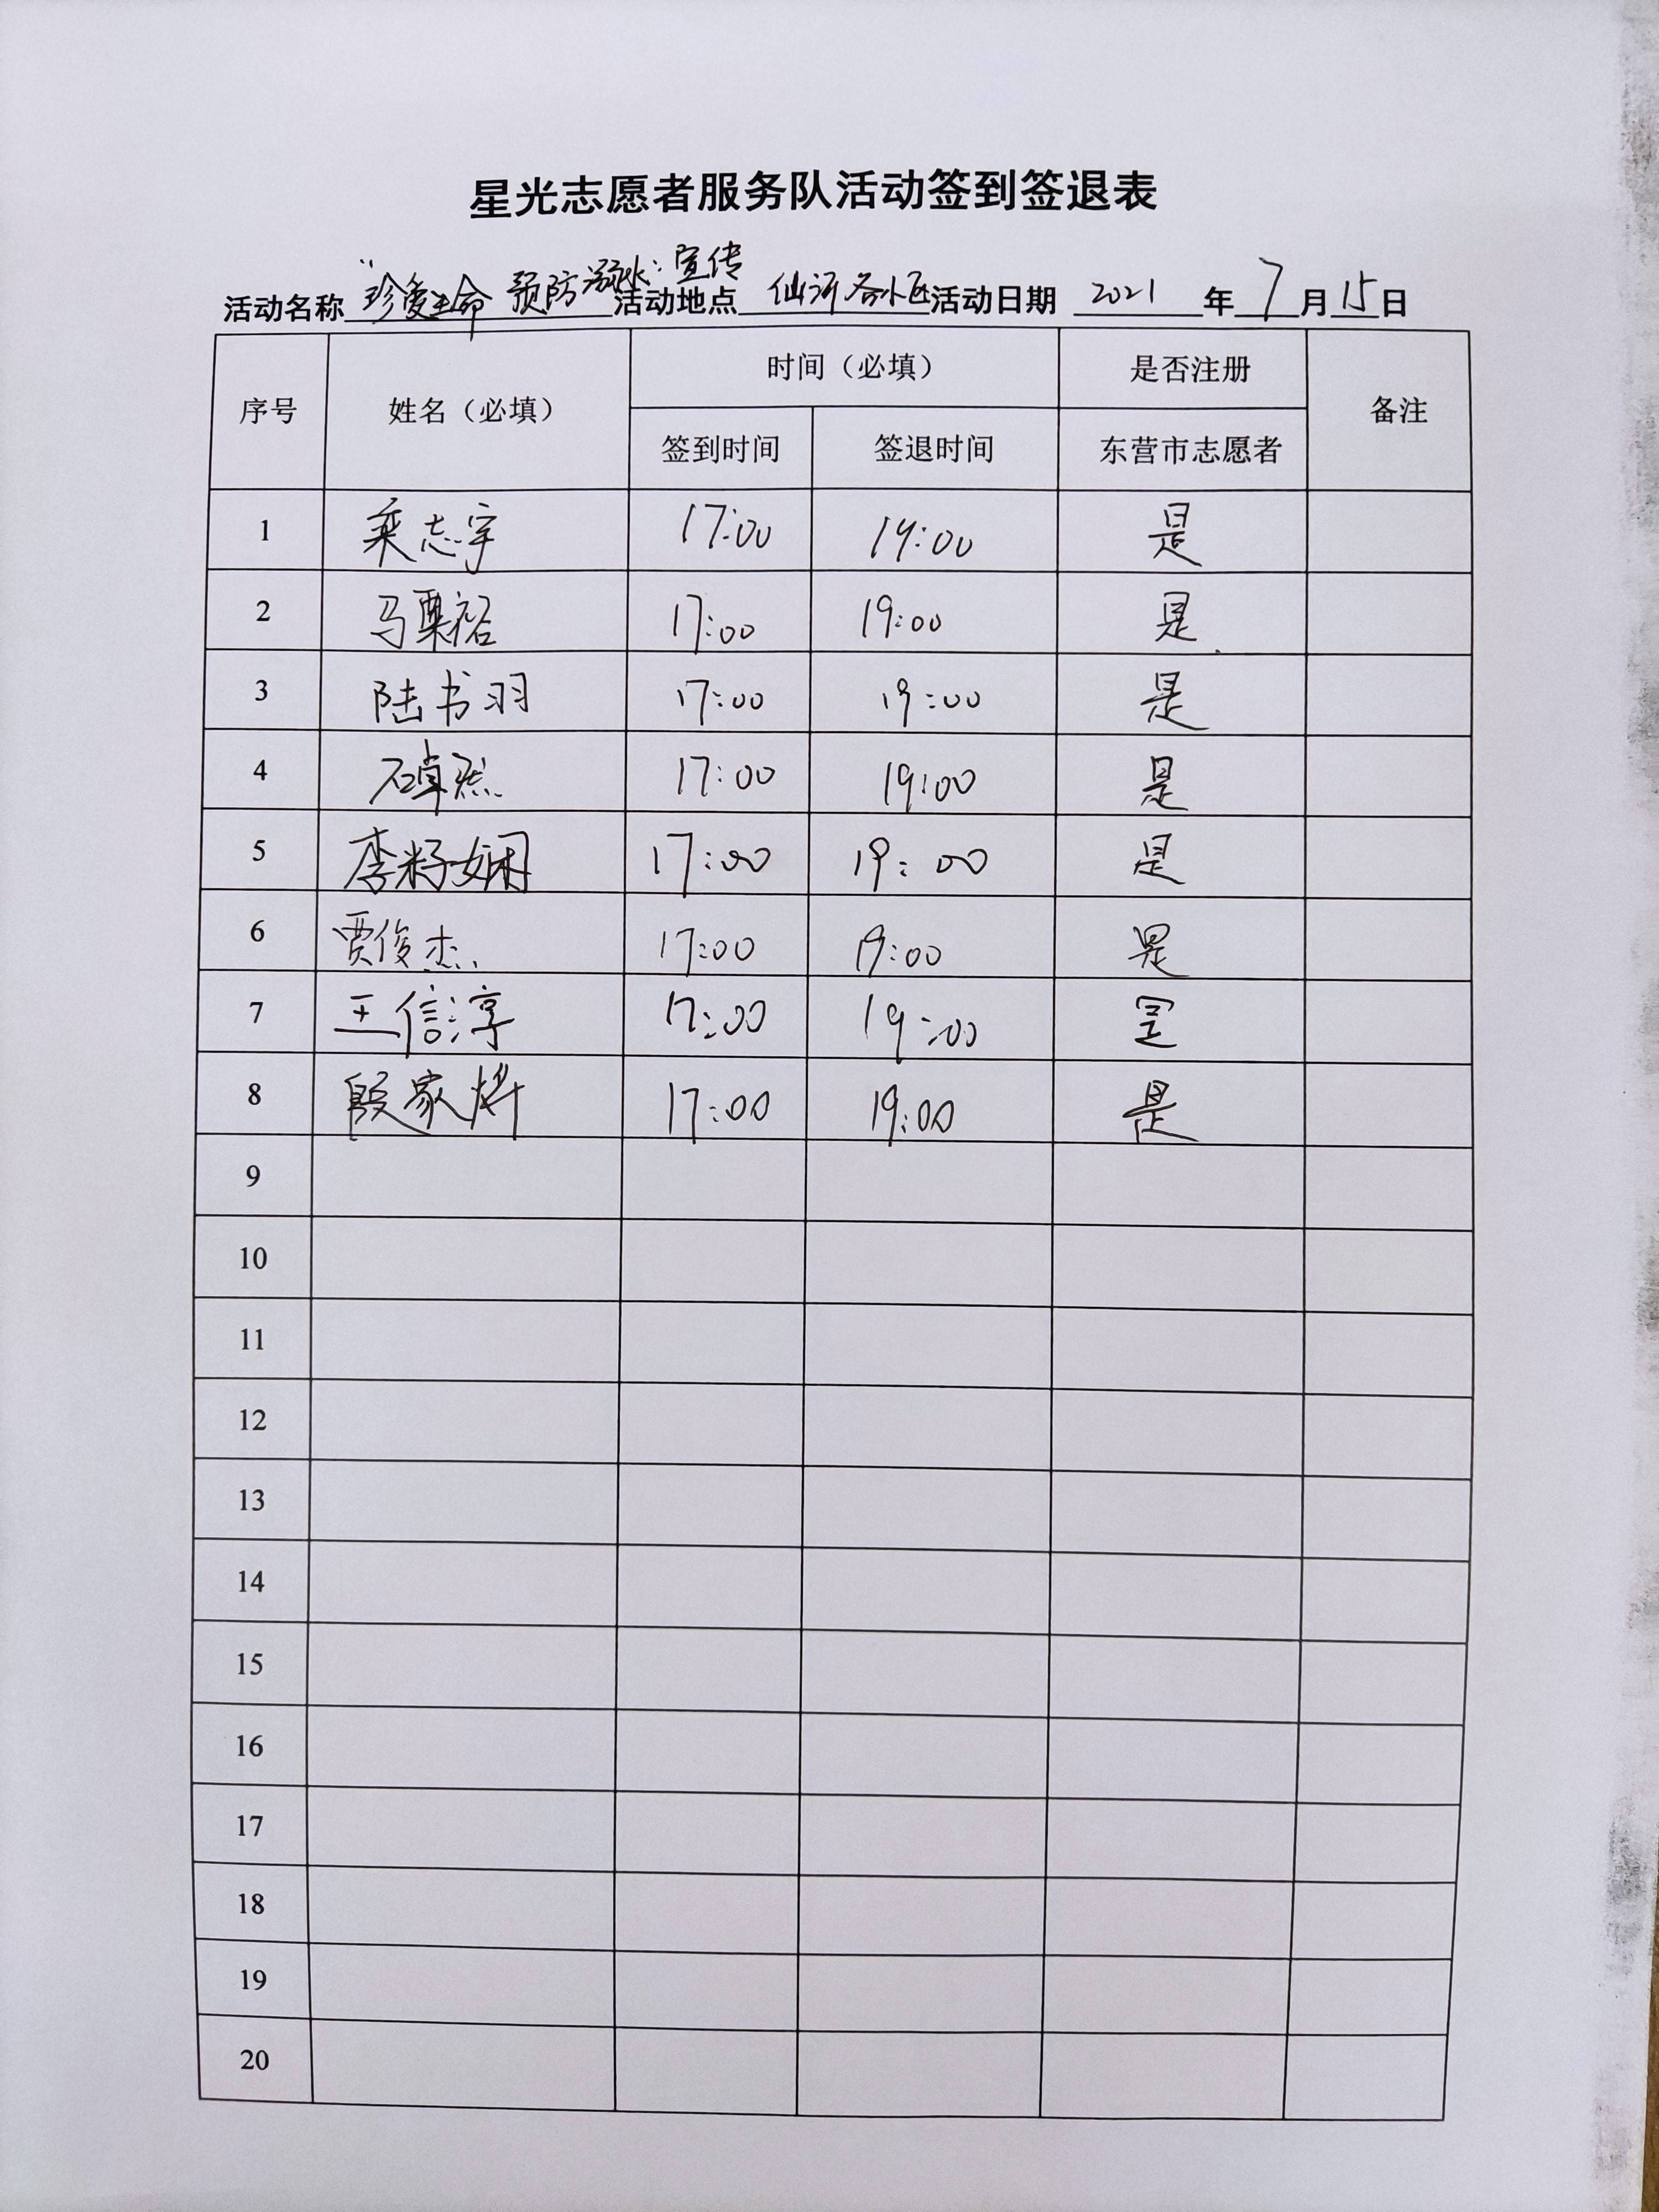 星光志愿者服务队活动签到签退表
活动名称 "珍爱生命 预防溺水"宣传 活动地点 仙河各小区 活动日期 2021 年 7 月 15 日
序号 姓名（必填） 时间（必填） 是否注册 备注
签到时间 签退时间 东营市志愿者
1 乘志宇 17:00 19:00 是
2 马栗裕 17:00 19:00 是
3 陆书羽 17:00 19:00 是
4 17:00 19:00 是
5 李籽娴 17:00 19:00 是
6 贾俊杰 17:00 19:00 是
7 王信淳 17:00 19:00 是
8 殷家烨 17:00 19:00 是
9
10
11
12
13
14
15
16
17
18
19
20